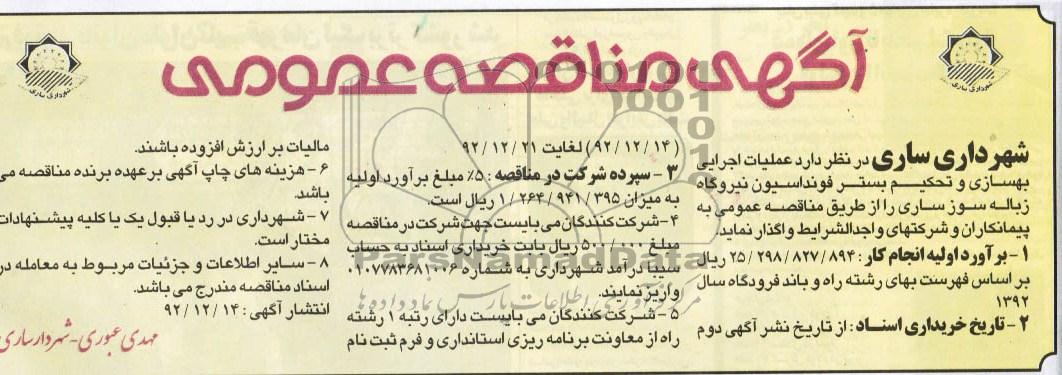 آگهی مناقصه عمومی
شهرداری ساری
شهرداری ساری
شهرداری ساری در نظر دارد عملیات اجرایی
بهسازی و تحکیم بستر فونداسیون نیروگاه
زباله سوز ساری را از طریق مناقصه عمومی به
پیمانکاران و شرکتهای واجدالشرایط واگذار نماید.
۱- برآورد اولیه انجام کار : ۲۵/۲۹۸/۸۲۷/۸۹۴ ریال
بر اساس فهرست بهای رشته راه و باند فرودگاه سال
۱۳۹۲
۲- تاریخ خریداری اسناد : از تاریخ نشر آگهی دوم
(۹۲/۱۲/۱۴) لغایت ۹۲/۱۲/۲۱
۳- سپرده شرکت در مناقصه : ۵٪ مبلغ برآورد اولیه
به میزان ۱/۲۶۴/۹۴۱/۳۹۵ ریال است.
۴- شرکت کنندگان می بایست جهت شرکت در مناقصه
مبلغ ۵۰۰/۰۰۰ ریال بابت خریداری اسناد به حساب
سیبا درآمد شهرداری به شماره ۰۱۰۷۷۸۳۶۸۱۰۰۶
واریز نمایند.
۵- شرکت کنندگان می بایست دارای رتبه ۱ رشته
راه از معاونت برنامه ریزی استانداری و فرم ثبت نام
مالیات بر ارزش افزوده باشند.
۶- هزینه های چاپ آگهی بر عهده برنده مناقصه می
باشد.
۷- شهرداری در رد یا قبول یک یا کلیه پیشنهادات
مختار است.
۸- سایر اطلاعات و جزئیات مربوط به معامله در
اسناد مناقصه مندرج می باشد.
انتشار آگهی : ۹۲/۱۲/۱۴
مهدی عبوری - شهردار ساری
ParsNamadData
مرکز فرآوری اطلاعات پارس نماد داده ها